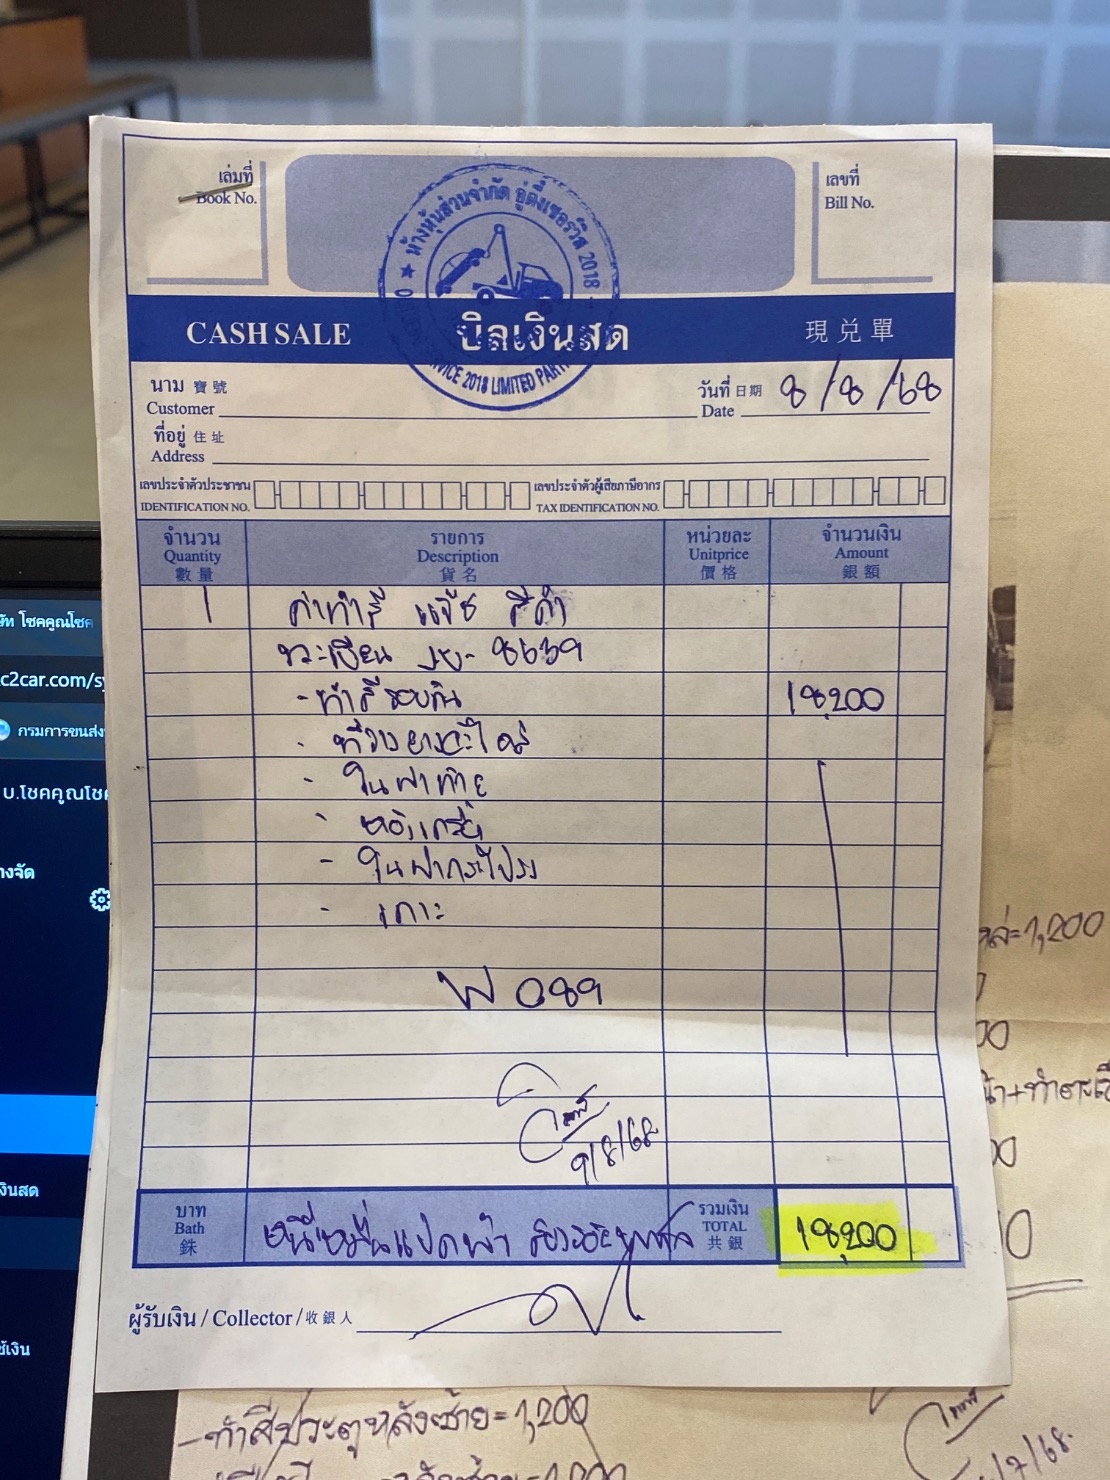 เล่มที่
Book No.
เลขที่
Bill No.
ห้างหุ้นส่วนจำกัด อู่ตี๋เซอร์วิส 2018
SERVICE 2018 LIMITED
CASH SALE
บิลเงินสด
現兑單
นาม 寶號
Customer
วันที่ 日期 8/8/68
Date
ที่อยู่ 住址
Address
เลขประจำตัวประชาชน
IDENTIFICATION NO.
เลขประจำตัวผู้เสียภาษีอากร
TAX IDENTIFICATION NO.
จำนวน
Quantity
數量
รายการ
Description
貨名
หน่วยละ
Unitprice
價格
จำนวนเงิน
Amount
銀額
1 ค่าทำสี แจ๊ซ สีดำ
ทะเบียน 8639
- ทำสีรอบคัน 18,200
- ที่วางยางอะไหล่
- ในฝาท้าย
- ในฝากระโปรง
- เกาะ
089
9/8/68
บาท
Bath
銖
หนึ่งหมื่นแปดพัน สองร้อยบาท
รวมเงิน
TOTAL
共銀
18,200
ผู้รับเงิน / Collector / 收銀人
โชคคูณโชค
c2car.com/sy
กรมการขนส่ง
บ.โชคคูณโช
างจัด
งินสด
ช้เงิน
=1,200
-ทำสีประตูหลังซ้าย=1,200